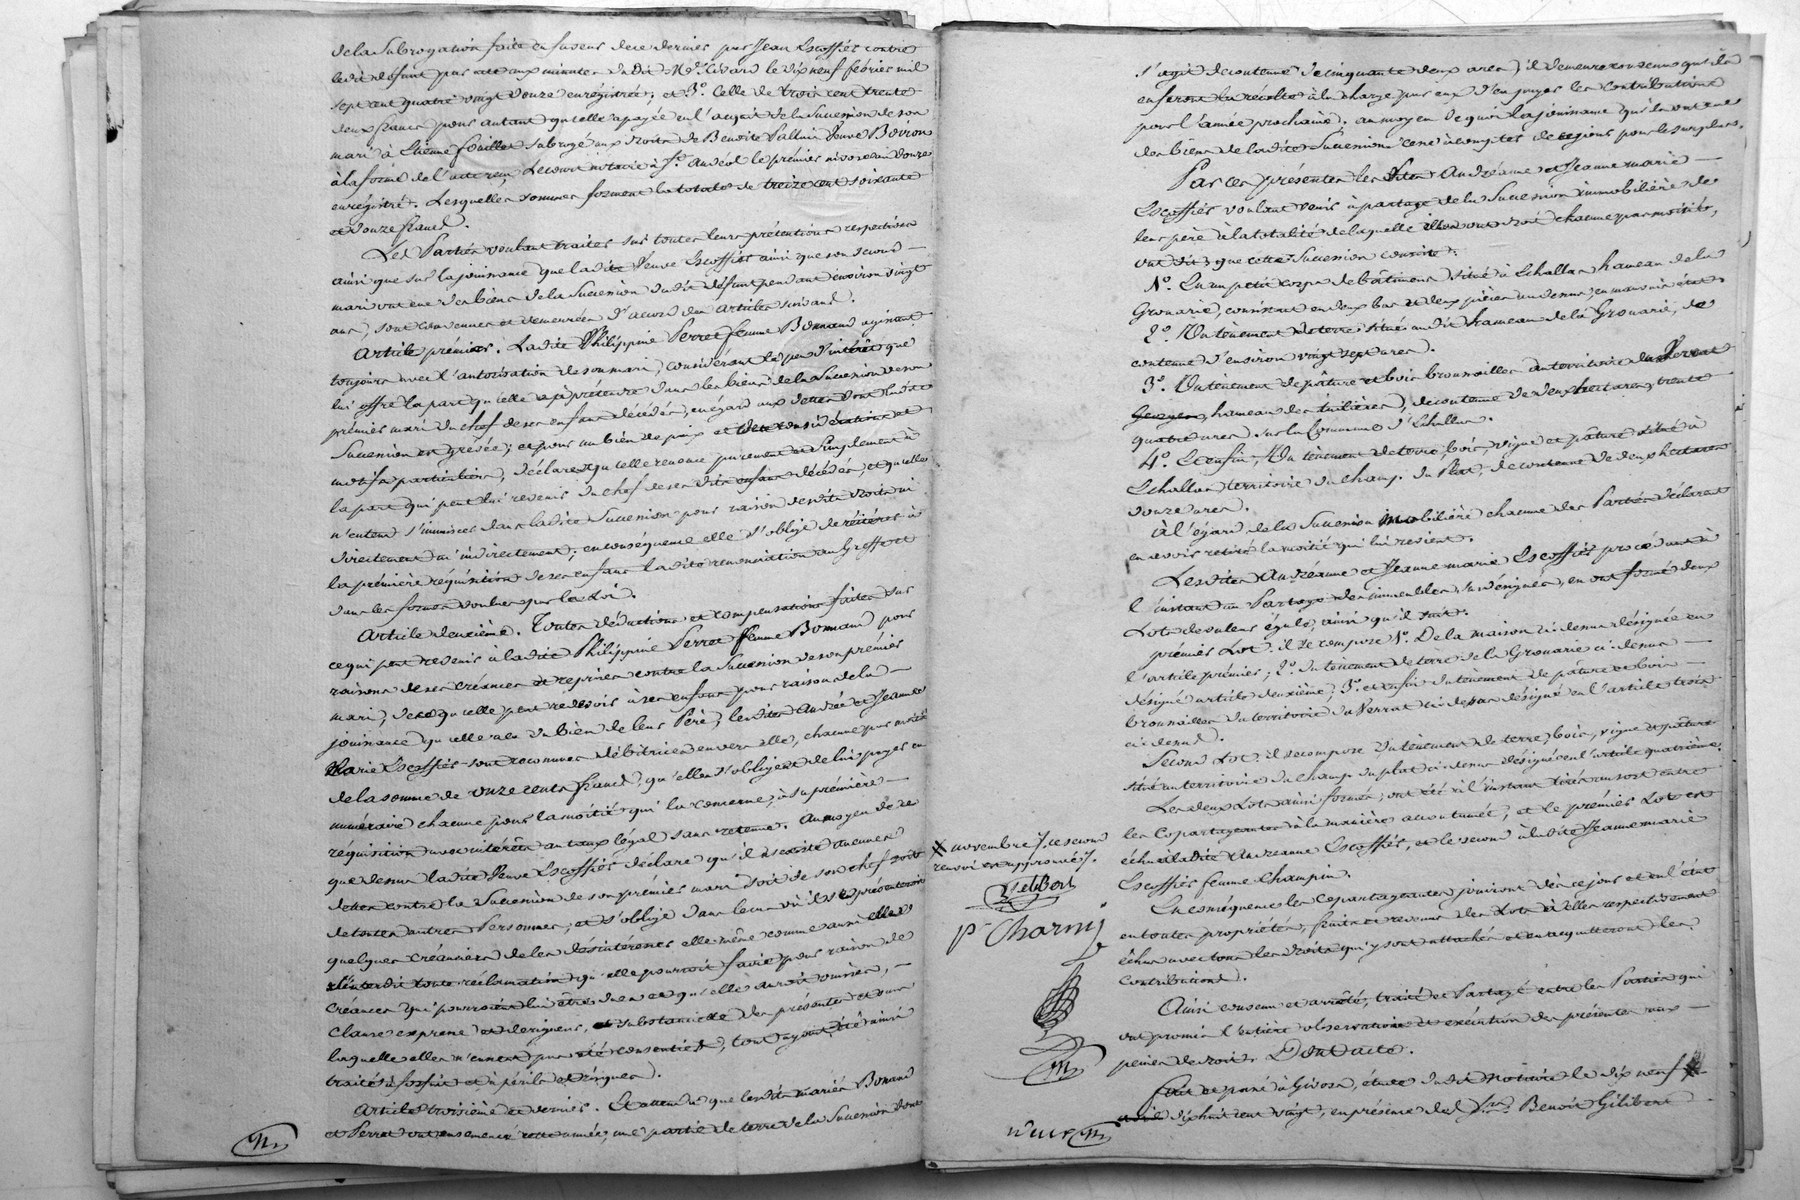 de la subrogation faite en faveur de ce dernier par Jean Escoffier contre
ledit défunt par acte aux minutes dudit Me. le dix neuf février mil
sept cent quatre vingt douze enregistrée; et 3o. Celle de trois cent trente
deux francs pour autant qu'elle a payée en l'acquit de la Succession de son
mari à Etienne subrogé aux droits de Benoite Veuve Boiron
à la forme de l'acte reçu Lecourt notaire à St. Andéol le premier nivose an douze
enregistré. Lesquelles sommes forment la totale de treize cent soixante
et douze francs.
Les Parties voulant traiter sur toutes leurs prétentions respectives
ainsi que sur la jouissance que ladite Veuve Escoffier ainsi que son second
mari ont eue des biens de la Succession dudit défunt pendant environ vingt
ans, sont convenues et demeurées d'accord des articles suivans.
Article prémier. Ladite Philippine Perret femme Bonnand agissant
toujours avec l'autorisation de son mari, considérant le peu d'intérêt que
lui offre la part qu'elle a à prétendre dans les biens de la Succession de son
prémier mari du chef de ses enfans décédés, eu égard aux dettes dont ladite
Succession est grévée; et pour un bien de paix et de considération et
motifs particuliers, déclare qu'elle renonce purement et simplement à
la part qui peut lui revenir du chef de ses dits enfans décédés, et qu'elle
n'entend s'immiscer dans ladite Succession pour raison desdits droits ni
directement ni indirectement; en conséquence elle s'oblige de réitérer à
la prémière réquisition de ses enfans ladite renonciation au Greffe et
dans les formes voulues par la Loi.
Article deuxième. Toutes déductions et compensations faites sur
ce qui peut revenir à ladite Philippine Perret femme Bonnand pour
raison de ses créances et reprises contre la Succession de son prémier
mari, de ce qu'elle peut redevoir à ses enfans pour raison de la
jouissance qu'elle a eu du bien de leur Père, lesdites Andrée et Jeanne
Marie Escoffier sont reconnues débitrices envers elle, chacune par moitié
de la somme de onze cents francs, qu'elles s'obligent de lui payer en
numéraire chacune pour la moitié qui la concerne, à sa prémière
réquisition avec intérêts au taux légal sans retenue. Au moyen de ce
que dessus ladite Veuve Escoffier déclare qu'il n'existe aucunes
dettes contre la Succession de son prémier mari soit de son chef soit
de toutes autres Personnes; et s'oblige dans le cas où il s'en présenteroit
quelques créanciers de les désintéresser elle même comme aussi elle
s'interdit toute réclamation qu'elle pourroit faire pour raison de
créances qui pourroient lui être dues et qu'elle auroit omises,
Clause expresse et de rigueur, et substantielle des présentes et sans
laquelle elles n'eussent pas été consenties, tout ayant été ainsi
traité à forfait et à périls et risques.
Article troisième et dernier. Et attendu que lesdits mariés Bonnand
et Perret ont ensemencé cette année, une partie de terre de la Succession dont
s'agit de contenue de cinquante deux ares, il demeure convenu qu'ils
en feront la récolte à la charge par eux d'en payer les contributions
pour l'année prochaine. au moyen de quoi la jouissance qu'ils ont eue
des biens de ladite Succession cesse à compter de ce jour pour le surplus.
Par ces présentes lesdites Andréanne et Jeanne marie
Escoffier voulant venir à partage de la Succession immobilière de
leur père à la totalité de laquelle elles ont droit chacune par moitié,
ont dit que cette Succession consiste:
1o. En un petit corps de bâtimens, situé à Echallas hameau de la
Grouarie, consistant en deux bas et deux pièces au dessus, en mauvais état.
2o. Un tènement de terre situé audit hameau de la Grouarie, de
contenue d'environ vingt sept ares.
3o. Un tènement de pâture et bois broussailles au territoire du Verrat
hameau des , de contenue de deux hectares, trente
quatre ares, sur la Commune d'Echallas.
4o. Et enfin, Un tènement de terre, bois, vigne et pâture situé à
Echallas territoire du champ du Plat, de contenue de deux hectares
douze ares.
à l'égard de la Succession mobilière chacune des Parties déclarent
en avoir retiré la moitié qui lui revient.
Lesdites Andréanne et Jeanne marie Escoffier procédant à
l'instant au Partage des immeubles sus désignés, en ont formé deux
Lots de valeur égale, ainsi qu'il suit.
prémier Lot. il se compose 1o. De la maison ci dessus désignée en
l'article prémier; 2o. du tènement de terre de la Grouarie ci dessus
désigné article deuxième; 3o. et enfin du tènement de pâture et bois
broussailles du territoire du Verrat ci dessus désigné en l'article trois
ci dessus.
Second Lot. il se compose du tènement de terre, bois, vigne et pâture
situé au territoire du champ du plat ci dessus désigné en l'article quatrième.
Les deux Lots ainsi formés, ont été à l'instant tirés au sort entre
les Copartageantes à la manière accoutumée, et le prémier Lot est
échu à ladite Andréanne Escoffier, et le second à ladite Jeanne marie
Escoffier femme Champin.
En conséquence les Copartageantes jouiront dès ce jour et en l'état
en toutes propriétés, fruits et revenus des Lots à elles respectivement
échus avec tous les droits qui y sont attachés et en acquitteront les
contributions.
Ainsi convenu et arrêté, traité et Partagé entre les Parties qui
ont promis l'entière observation et exécution des présentes aux
peines de droit. Dont acte.
Fait et passé à Givors, étude dudit Notaire le dix neuf
dix huit cent vingt, en présence de Srs. Benoit Gilibert
novembre /. ce second
renvoi est approuvé /.
Gilibert
Charny